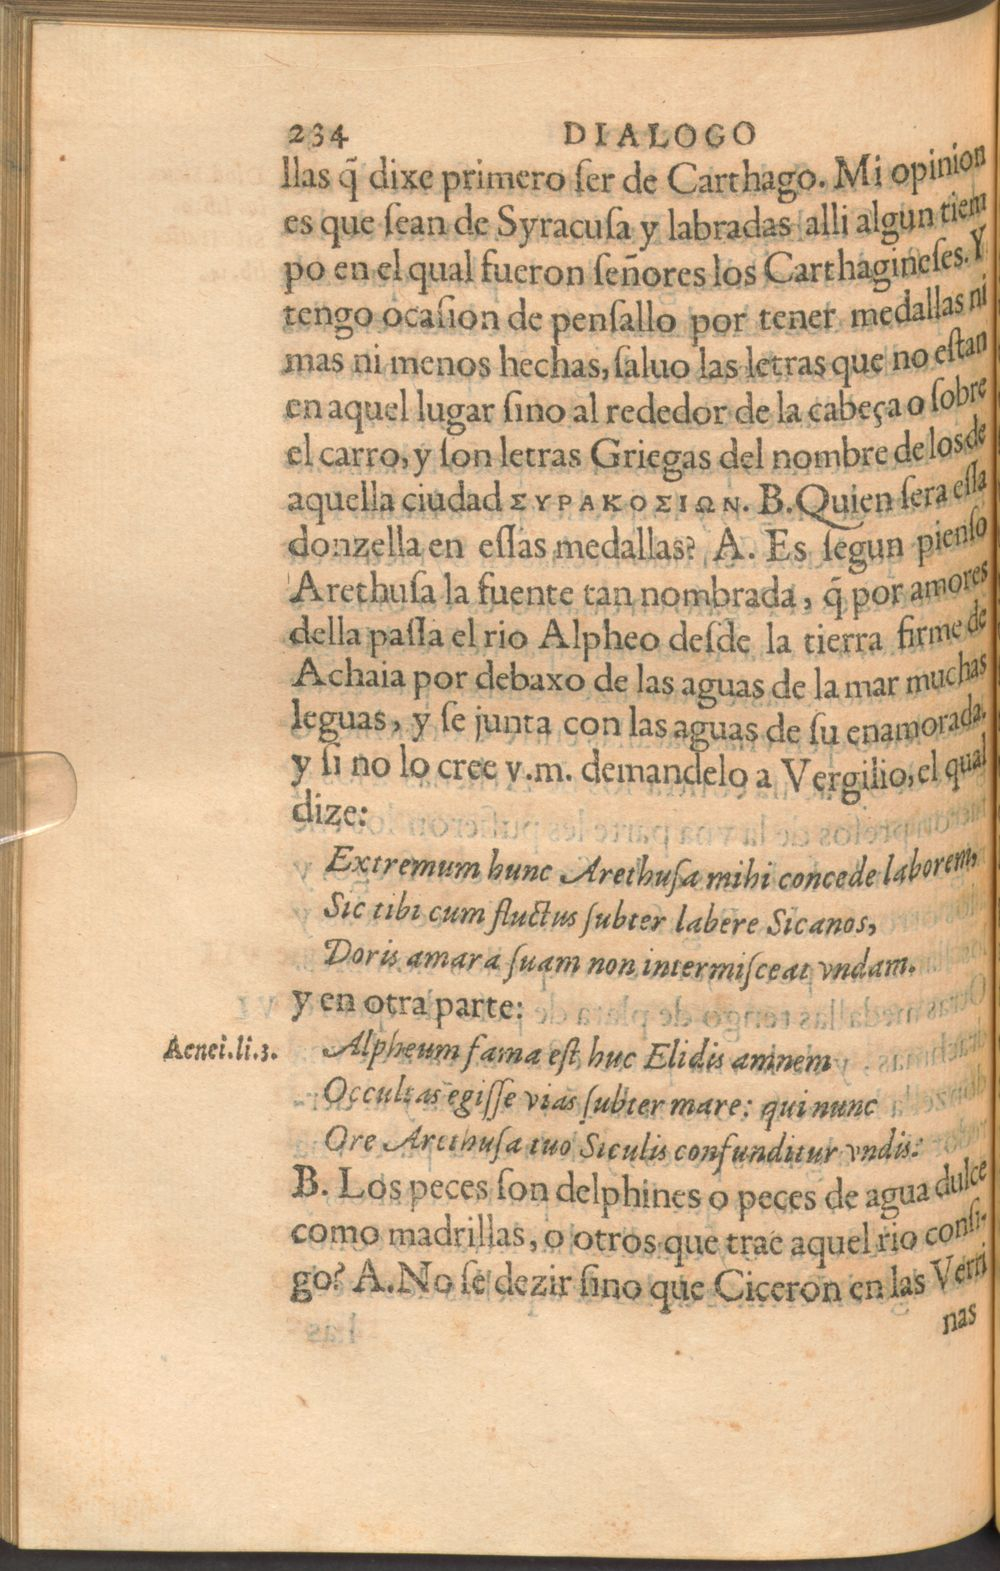 234 DIALOGO
llas q̃ dixe primero ſer de Carthago. Mi opinion
es que ſean de Syracuſa y labradas alli algun tiem
po en el qual fueron ſeñores los Carthagineſes. Y
tengo ocaſion de penſallo por tener medallas ni
mas ni menos hechas, ſaluo las letras que no eſtan
en aquel lugar ſino al rededor de la cabeça o ſobre
el carro, y ſon letras Griegas del nombre de los de
aquella ciudad ΣΥΡΑΚΟΣΙΩΝ. B. Quien ſera eſſa
donzella en eſſas medallas? A. Es ſegun pienſo
Arethuſa la fuente tan nombrada, q̃ por amores
della paſſa el rio Alpheo deſde la tierra firme de
Achaia por debaxo de las aguas de la mar muchas
leguas, y ſe junta con las aguas de ſu enamorada.
y ſi no lo cree v.m. demandelo a Vergilio, el qual
dize:
Extremum hunc Arethuſa mihi concede laborem,
Sic tibi cum fluctus ſubter labere Sicanos,
Doris amara ſuam non intermiſceat vndam.
y en otra parte:
Aenei.li.3. Alpheum fama eſt huc Elidis amnem
Occultas egiſſe vias ſubter mare: qui nunc
Ore Arethuſa tuo Siculis confunditur vndis.
B. Los peces ſon delphines o peces de agua dulce
como madrillas, o otros que trae aquel rio conſi-
go? A. No ſe dezir ſino que Ciceron en las Verri
nas